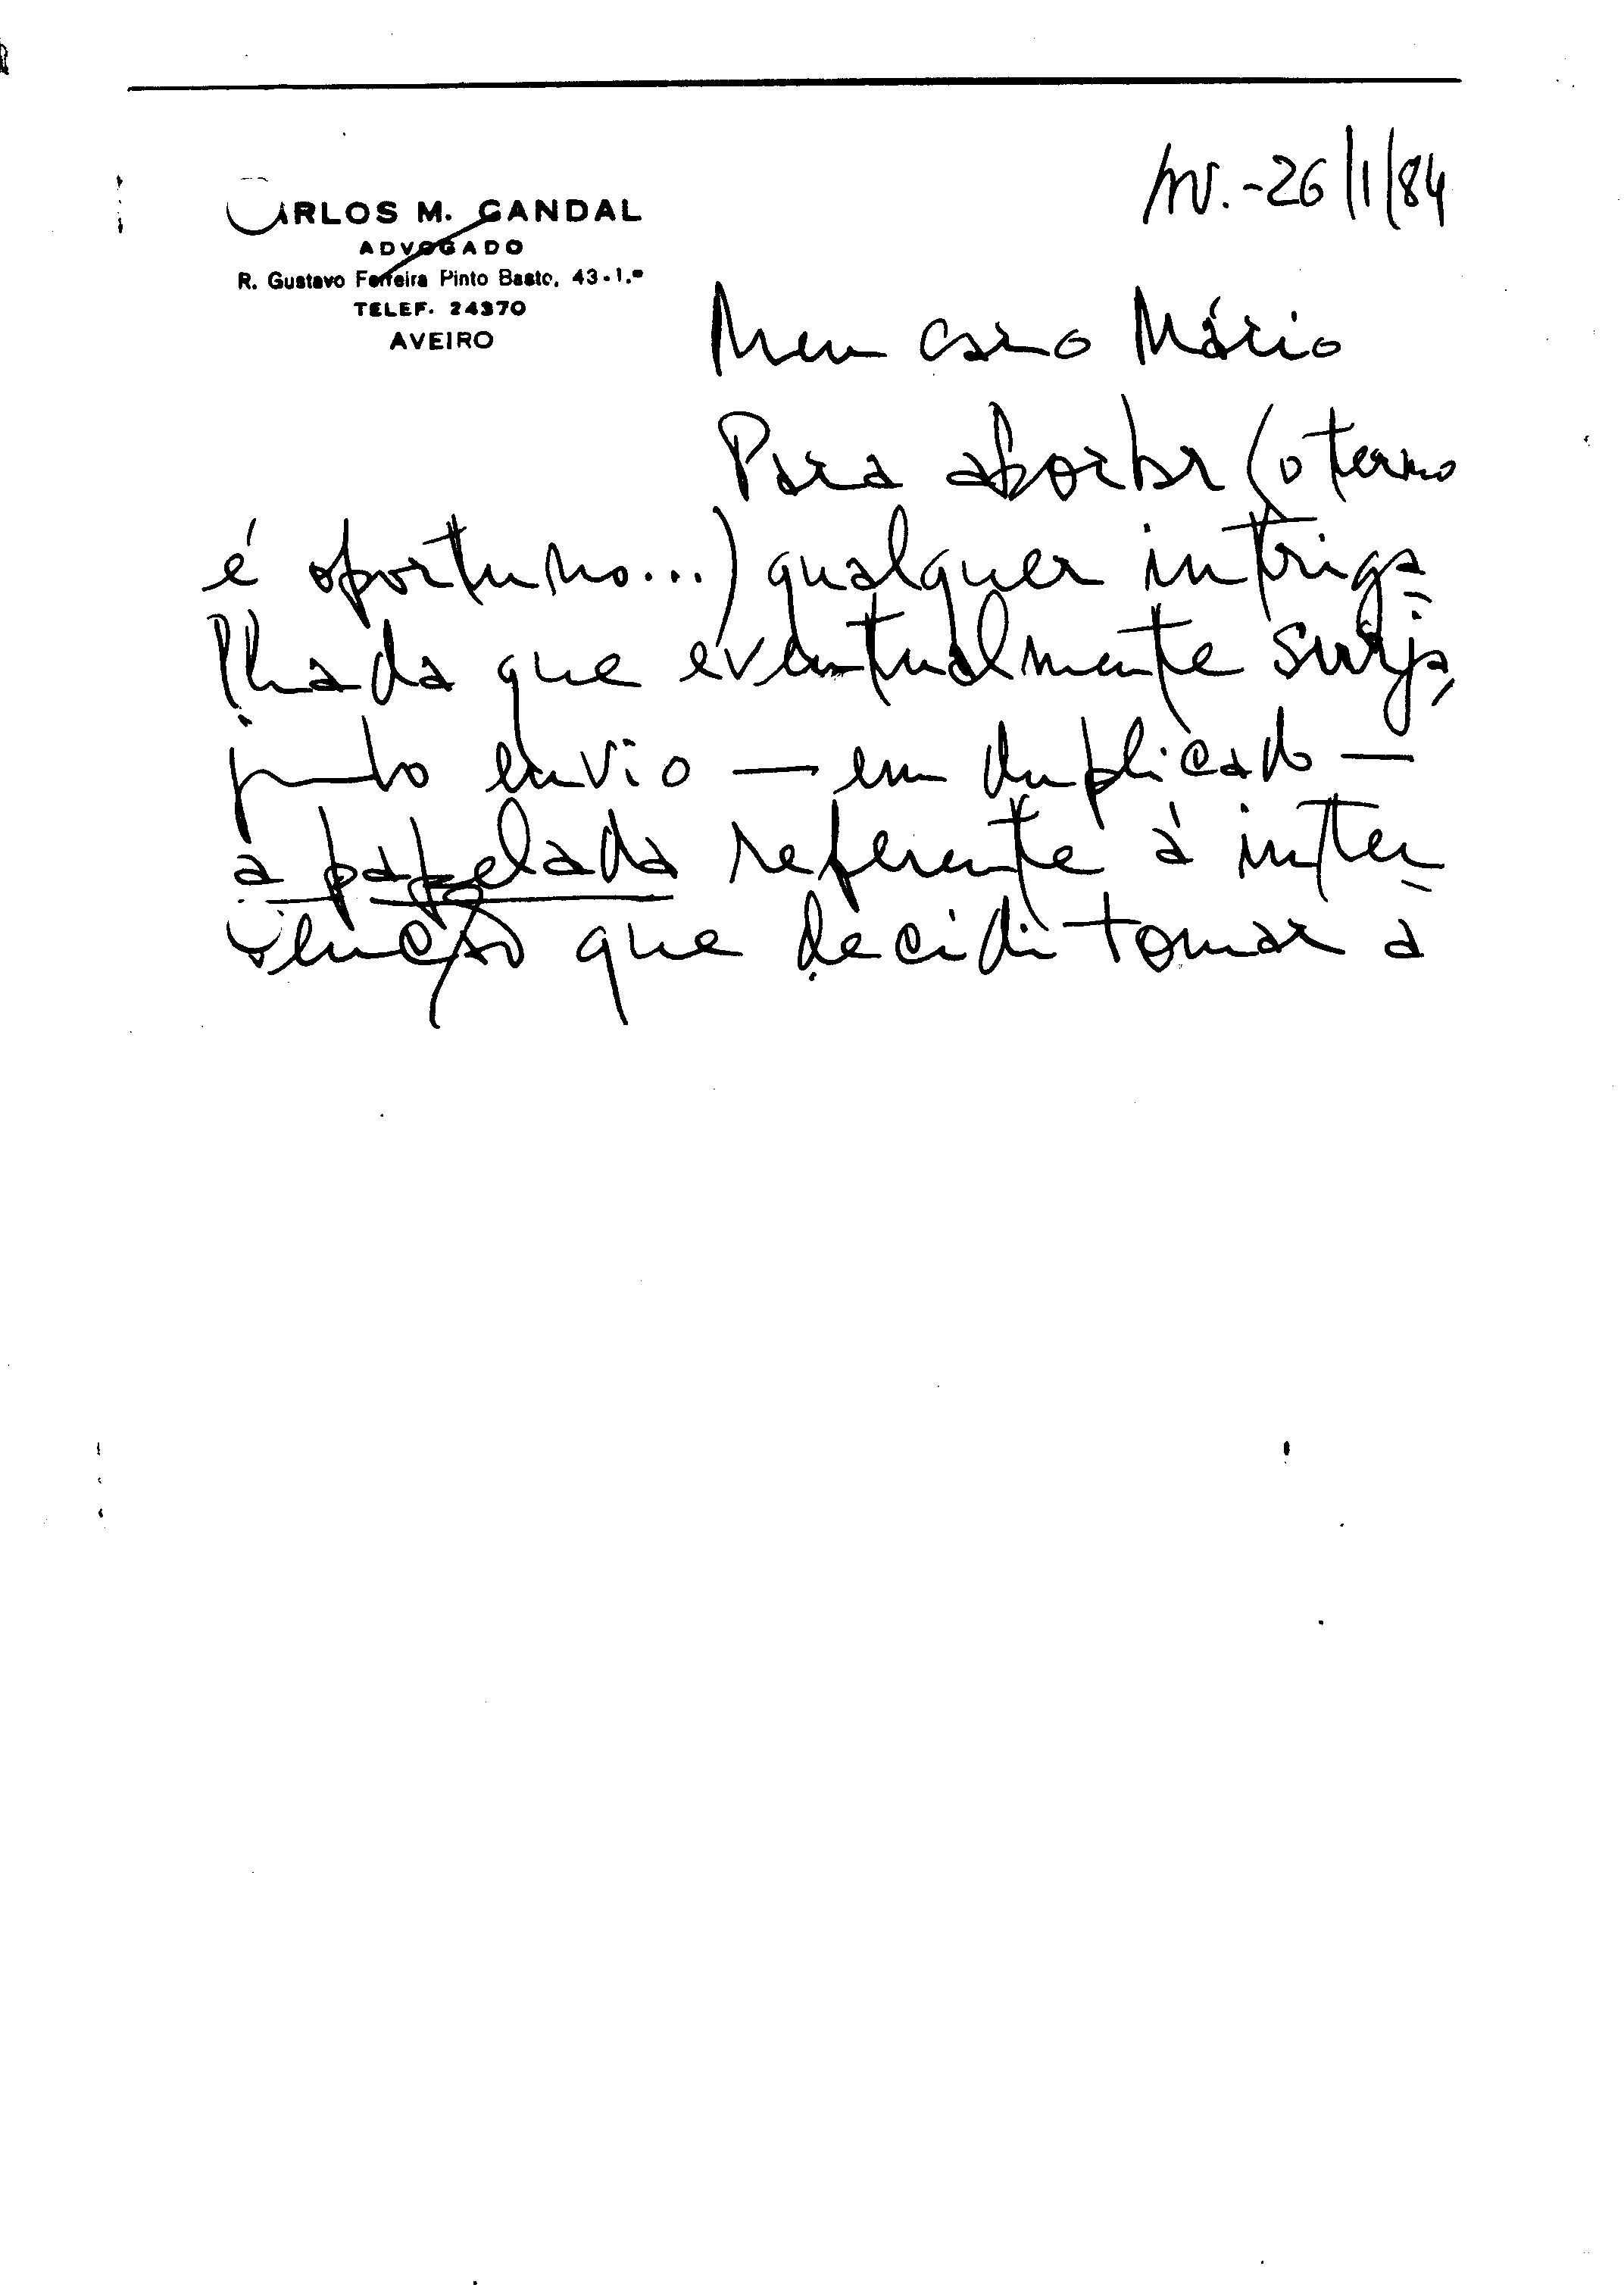 CARLOS M. CANDAL
ADVOGADO
R. Gustavo Ferreira Pinto Basto, 43-1.º
TELEF. 24370
AVEIRO
Av. - 26/1/84
Meu caro Mário
Para abortar (o termo
é oportuno...) qualquer intriga
lhada que eventualmente surja,
junto envio — em duplicado —
a papelada referente à inter
venção que decidi tomar a